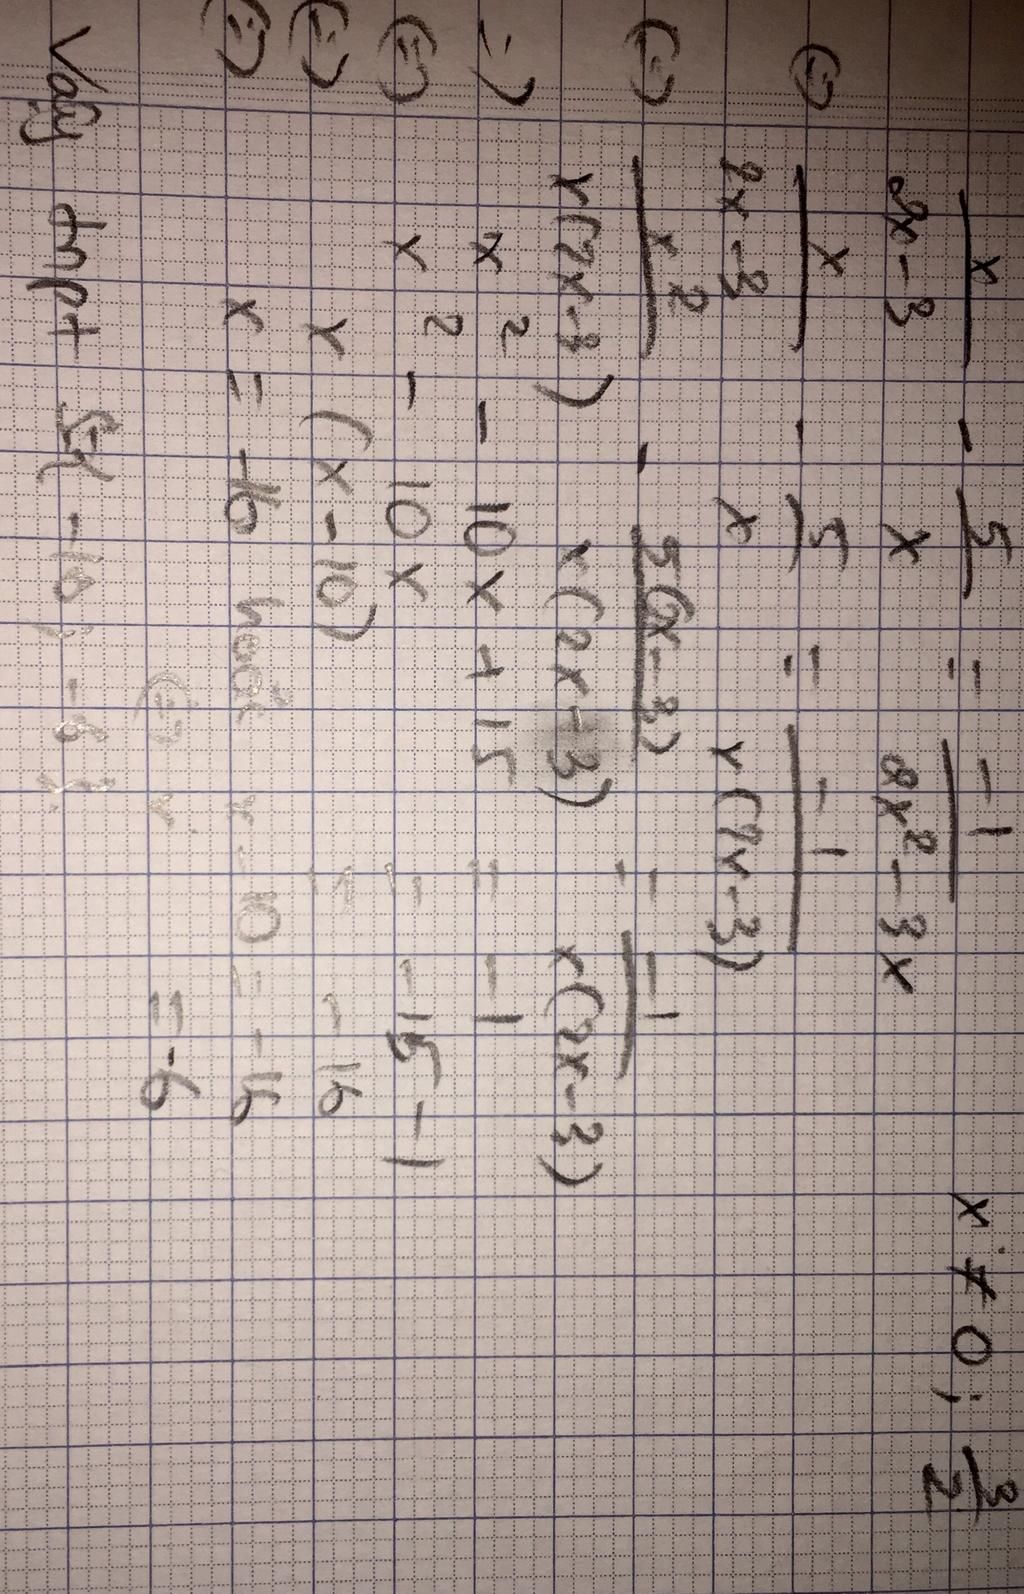 x/2x-3 - 5/x = -1/2x²-3x x ≠ 0; 3/2
(=) x/2x-3 - 5/x = -1/x(2x-3)
(=) x²/x(2x-3) - 5(2x-3)/x(2x-3) = -1/x(2x-3)
=) x² - 10x + 15 = -1
(=) x² - 10x = -15 - 1
(=) x(x-10) = -16
(=) x = -16 hoặc x - 10 = -16
(=) x = -6
Vậy tnpt S={-16; -6}